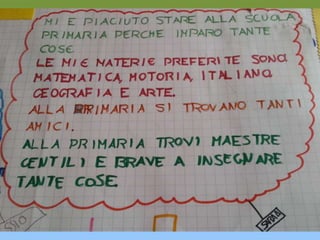 MI È PIACIUTO STARE ALLA SCUOLA
PRIMARIA PERCHE IMPARO TANTE
COSE.
LE MIE MATERIE PREFERITE SONO
MATEMATICA, MOTORIA, ITALIANO
GEOGRAFIA E ARTE.
ALLA PRIMARIA SI TROVANO TANTI
AMICI.
ALLA PRIMARIA TROVI MAESTRE
GENTILI E BRAVE A INSEGNARE
TANTE COSE.